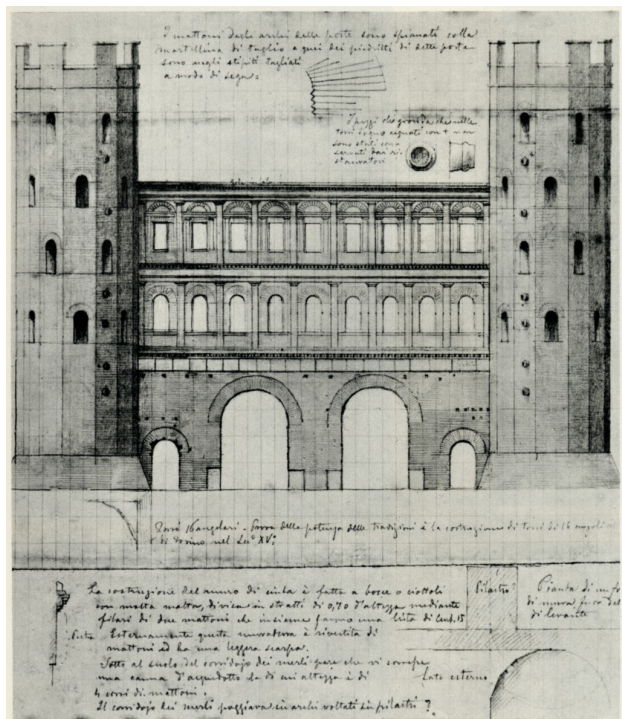 I mattoni degli archi delle porte sono spianati colla
martellina di taglio e quei dei piedritti di dette porte
sono negli stipiti tagliati
a modo di sega:
che nelle
torri segnati con +
sono stati
dai
stauratori
Torri 16angolari. Prova della potenza delle tradizioni è la costruzione di torri di 16 angoli
di Torino nel XV
La costruzione del muro di cinta è fatta a bocce o ciottoli
con molta malta, divisa in stratti di 0,70 d'altezza mediante
filari di due mattoni che insieme fanno una lista di
Esternamente questa muratura è rivestita di
mattoni ed ha una leggera scarpa.
Sotto al suolo del corridojo dei merli pare che vi
una canna d'acquedotto la di cui altezza è di
4 corsi di mattoni.
Il corridojo dei merli poggiava su archi voltati su pilastri ?
Pilastro
Pianta di un
di mura
di levante
Lato esterno